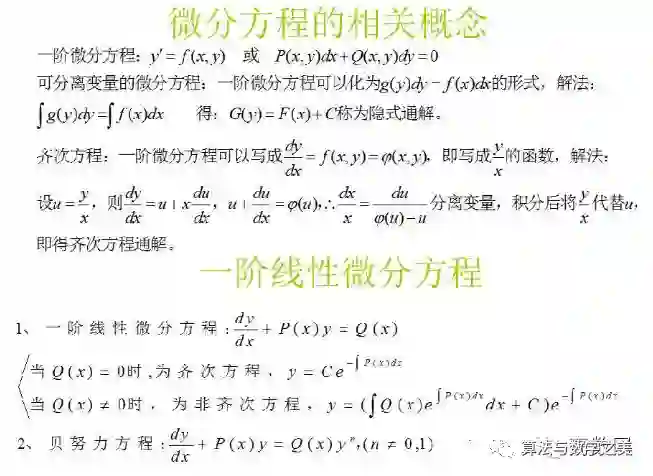 微分方程的相关概念
一阶微分方程：y′ = f(x, y)　或　P(x, y)dx + Q(x, y)dy = 0
可分离变量的微分方程：一阶微分方程可以化为g(y)dy = f(x)dx的形式，解法：
∫g(y)dy = ∫f(x)dx　得：G(y) = F(x) + C称为隐式通解。
齐次方程：一阶微分方程可以写成dy/dx = f(x, y) = φ(x, y)，即写成y/x的函数，解法：
设u = y/x，则dy/dx = u + x du/dx，u + du/dx = φ(u)，∴ dx/x = du/(φ(u) − u)分离变量，积分后将y/x代替u，
即得齐次方程通解。
一阶线性微分方程
1、一阶线性微分方程：dy/dx + P(x)y = Q(x)
当Q(x) = 0时,为齐次方程，y = Ce^(−∫P(x)dx)
当Q(x) ≠ 0时，为非齐次方程，y = (∫Q(x)e^(∫P(x)dx)dx + C)e^(−∫P(x)dx)
2、贝努力方程：dy/dx + P(x)y = Q(x)y^n，(n ≠ 0,1)
算法与数学之美